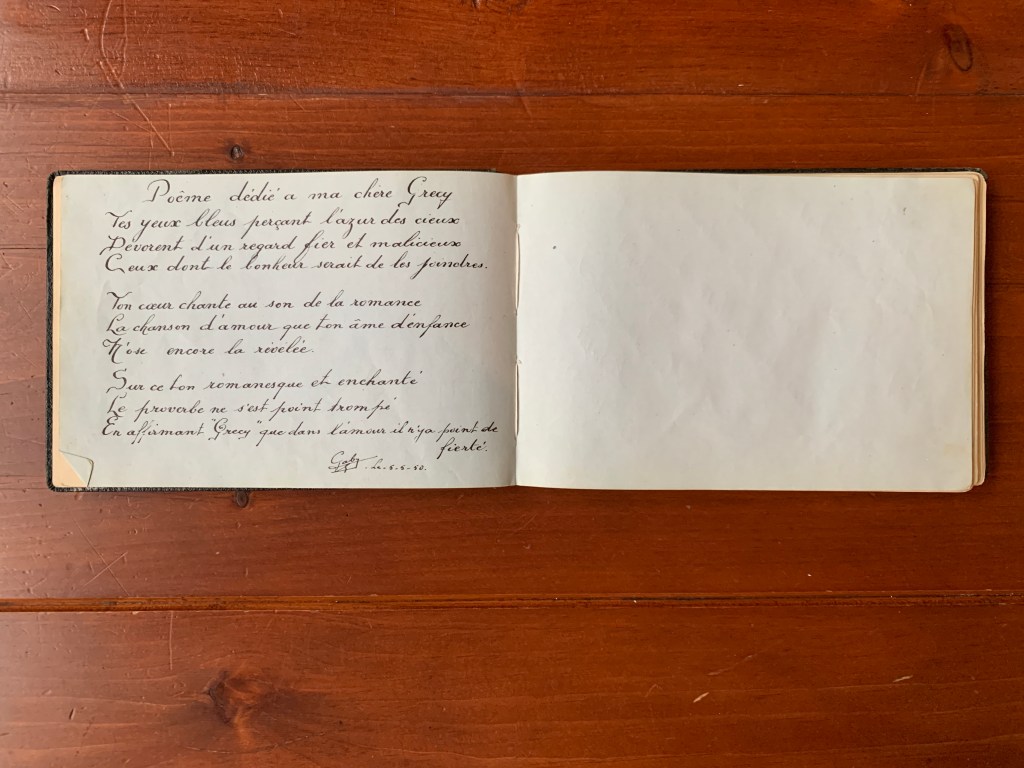 Poême dédié a ma chère Grecy
Tes yeux bleus perçant l'azur des cieux
Dévorent d'un regard fier et malicieux
Ceux dont le bonheur serait de les joindres.
Ton cœur chante au son de la romance
La chanson d'amour que ton âme d'enfance
N'ose encore la révélée.
Sur ce ton romanesque et enchanté
Le proverbe ne s'est point trompé
En affirmant "Grecy" que dans l'amour il n'ya point de
fierté.
Gaby Le 5-5-50.